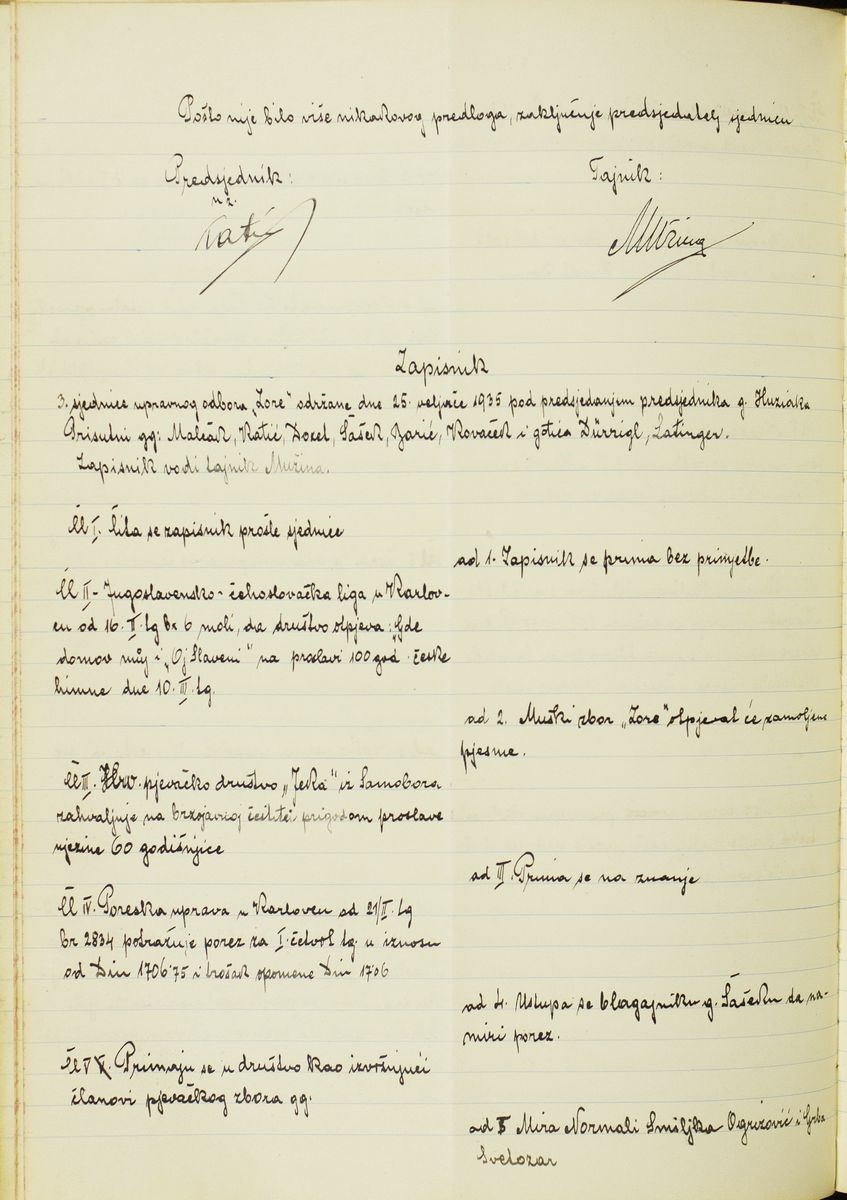 Pošto nije bilo više nikakovog predloga, zaključuje predsjedatelj sjednicu
Predsjednik:
Tajnik:
n z.
Katić
MMužina
Zapisnik
3. sjednice upravnog odbora „Zore“ održane dne 25. veljače 1935 pod predsjedanjem predsjednika g. Huziaka
Prisutni gg: Malčák, Katić, Doxel, Šašek, Barić, Kovaček i gđica Dürrigl, Latinger.
Zapisnik vodi tajnik Mužina.
Čl I. Čita se zapisnik prošle sjednice
ad 1. Zapisnik se prima bez primjetbe.
Čl II- Jugoslavensko-čehoslovačka liga u Karlov-
cu od 16. II. tg br 6 moli, da društvo otpjeva: „Gde
domov můj i „Oj Slaveni“ na proslavi 100 god. češke
himne dne 10. III. tg.
ad 2. Muški zbor „Zore“ otpjevat će zamoljene
pjesme.
Čl III. Hrv. pjevačko društvo „Jeka“ iz Samobora
zahvaljuje na brzojavnoj čestitci prigodom proslave
njezine 60 godišnjice
ad III. Prima se na znanje
Čl IV. Poreska uprava u Karlovcu od 21/II. tg
br 2834 potražuje porez za I. četvrt tg. u iznosu
od Din 1706.75 i trošak opomene Din 17.06
ad 4. Ustupa se blagajniku g. Šašeku da na-
miri porez.
Čl V. Primaju se u društvo kao izvršujući
članovi pjevačkog zbora gg.
ad 5 Mira Normali Smiljka Ogrizović i Grba
Svetozar